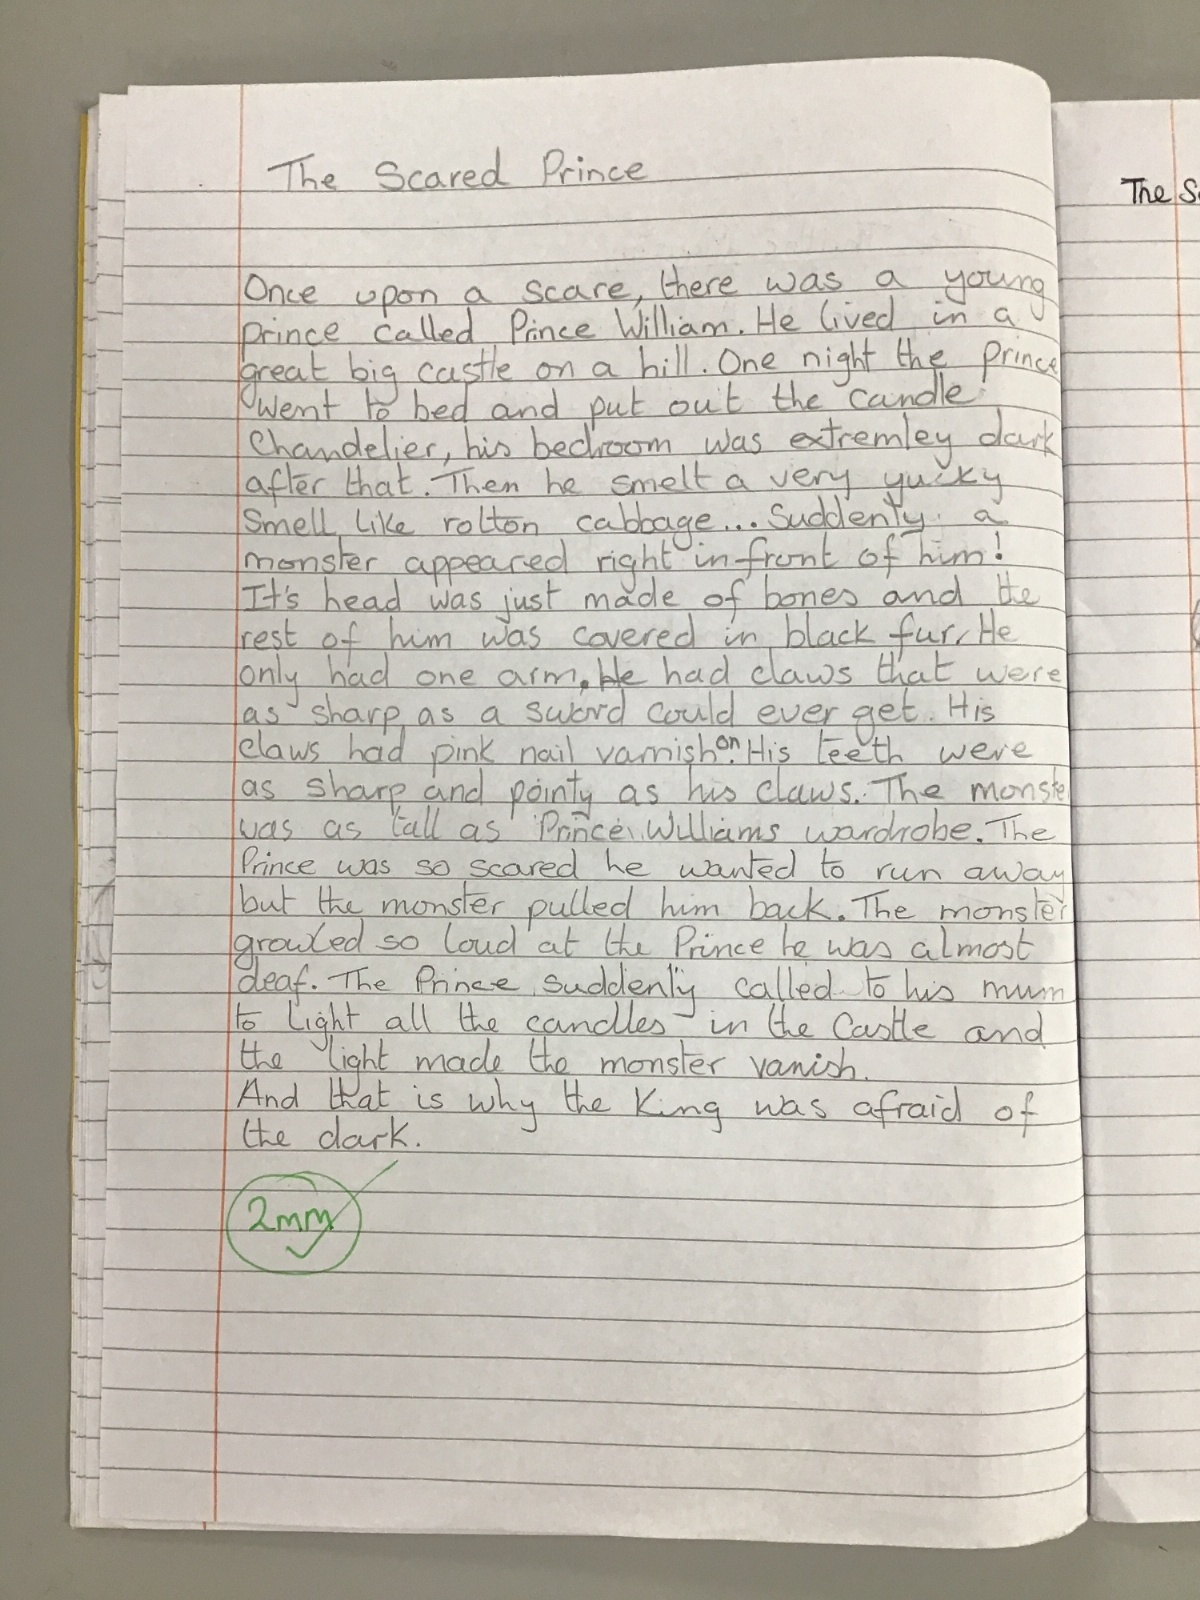 The Scared Prince
Once upon a scare, there was a young
prince called Prince William. He lived in a
great big castle on a hill. One night the prince
went to bed and put out the candle
Chandelier, his bedroom was extremley dark
after that. Then he smelt a very yucky
Smell like rotton cabbage... Suddenly a
monster appeared right infront of him!
It's head was just made of bones and the
rest of him was covered in black fur. He
only had one arm. He had claws that were
as sharp as a sword could ever get. His
claws had pink nail varnish on. His teeth were
as sharp and pointy as his claws. The monste
was as tall as Prince Williams wardrobe. The
Prince was so scared he wanted to run away
but the monster pulled him back. The monster
growled so loud at the Prince he was almost
deaf. The Prince suddenly called to his mum
to light all the candles in the Castle and
the light made the monster vanish.
And that is why the King was afraid of
the dark.
2mm
The